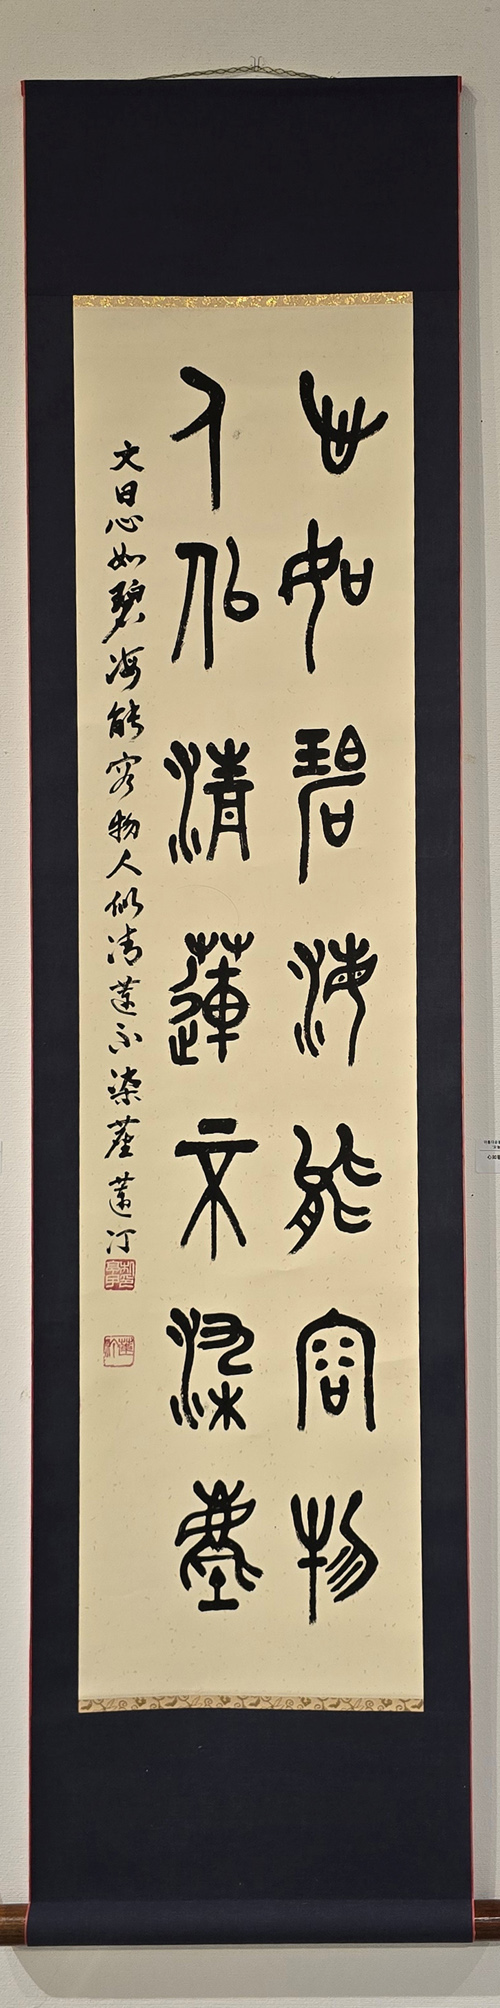 心如碧海能容物
人似清蓮不染塵
文曰心如碧海能容物人似清蓮不染塵 蓮汀